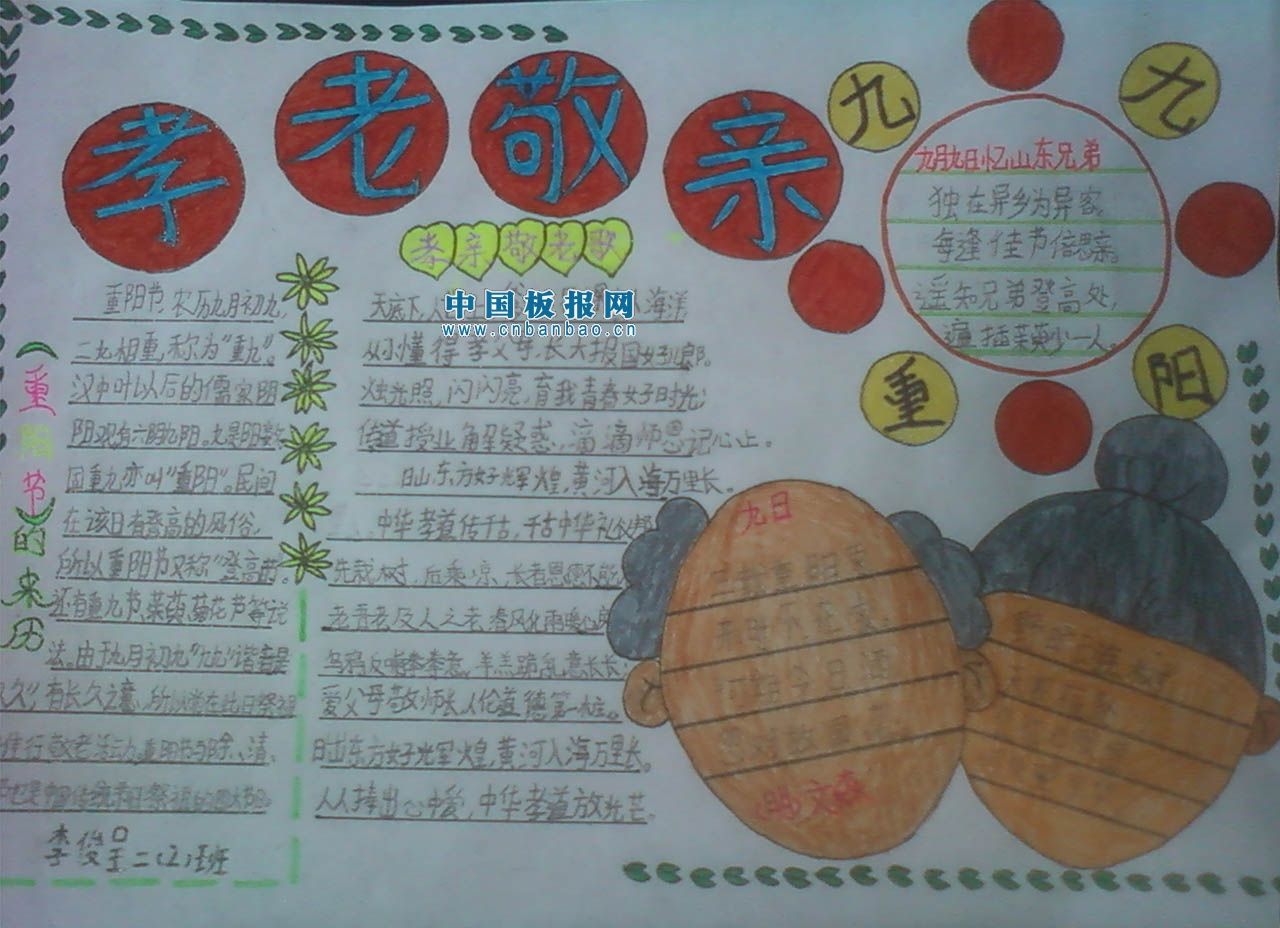 孝老敬亲
九九重阳
孝亲敬老歌
(重阳节)的来历
重阳节,农历九月初九,
二九相重,称为“重九”。
汉中叶以后的儒家阴
阳观,有六阴九阳。九是阳数,
固重九亦叫“重阳”。民间
在该日有登高的风俗,
所以重阳节又称“登高节”。
还有重九节、茱萸、菊花节等说
法。由于九月初九“九九”谐音是
久久”有长久之意,所以常在此日祭祖
推行敬老活动。重阳节与除、清、
也是中国传统节日祭祖的四大节日。
李俊呈二(2)班
天底下,人 上 海洋
从小懂得孝父母,长大报国好儿郎。
烛光照,闪闪亮,育我青春好时光;
传道授业解疑惑,滴滴师恩记心上。
日出东方好辉煌,黄河入海万里长。
中华孝道传千古,千古中华礼仪邦
先栽树,后乘凉,长者恩德不能
老吾老及人之老,春风化雨暖心房
乌鸦反哺孝孝意,羊羔跪乳意长长;
爱父母敬师长,人伦道德第一桩。
日出东方好光辉煌,黄河入海万里长。
人人捧出心中爱,中华孝道放光芒。
九月九日忆山东兄弟
独在异乡为异客,
每逢佳节倍思亲。
遥知兄弟登高处,
遍插茱萸少一人。
九日
(明)文森
三载重阳菊,
开时不在家。
何期今日酒
忽对故园花
中国板报网
www.cnbanbao.cn